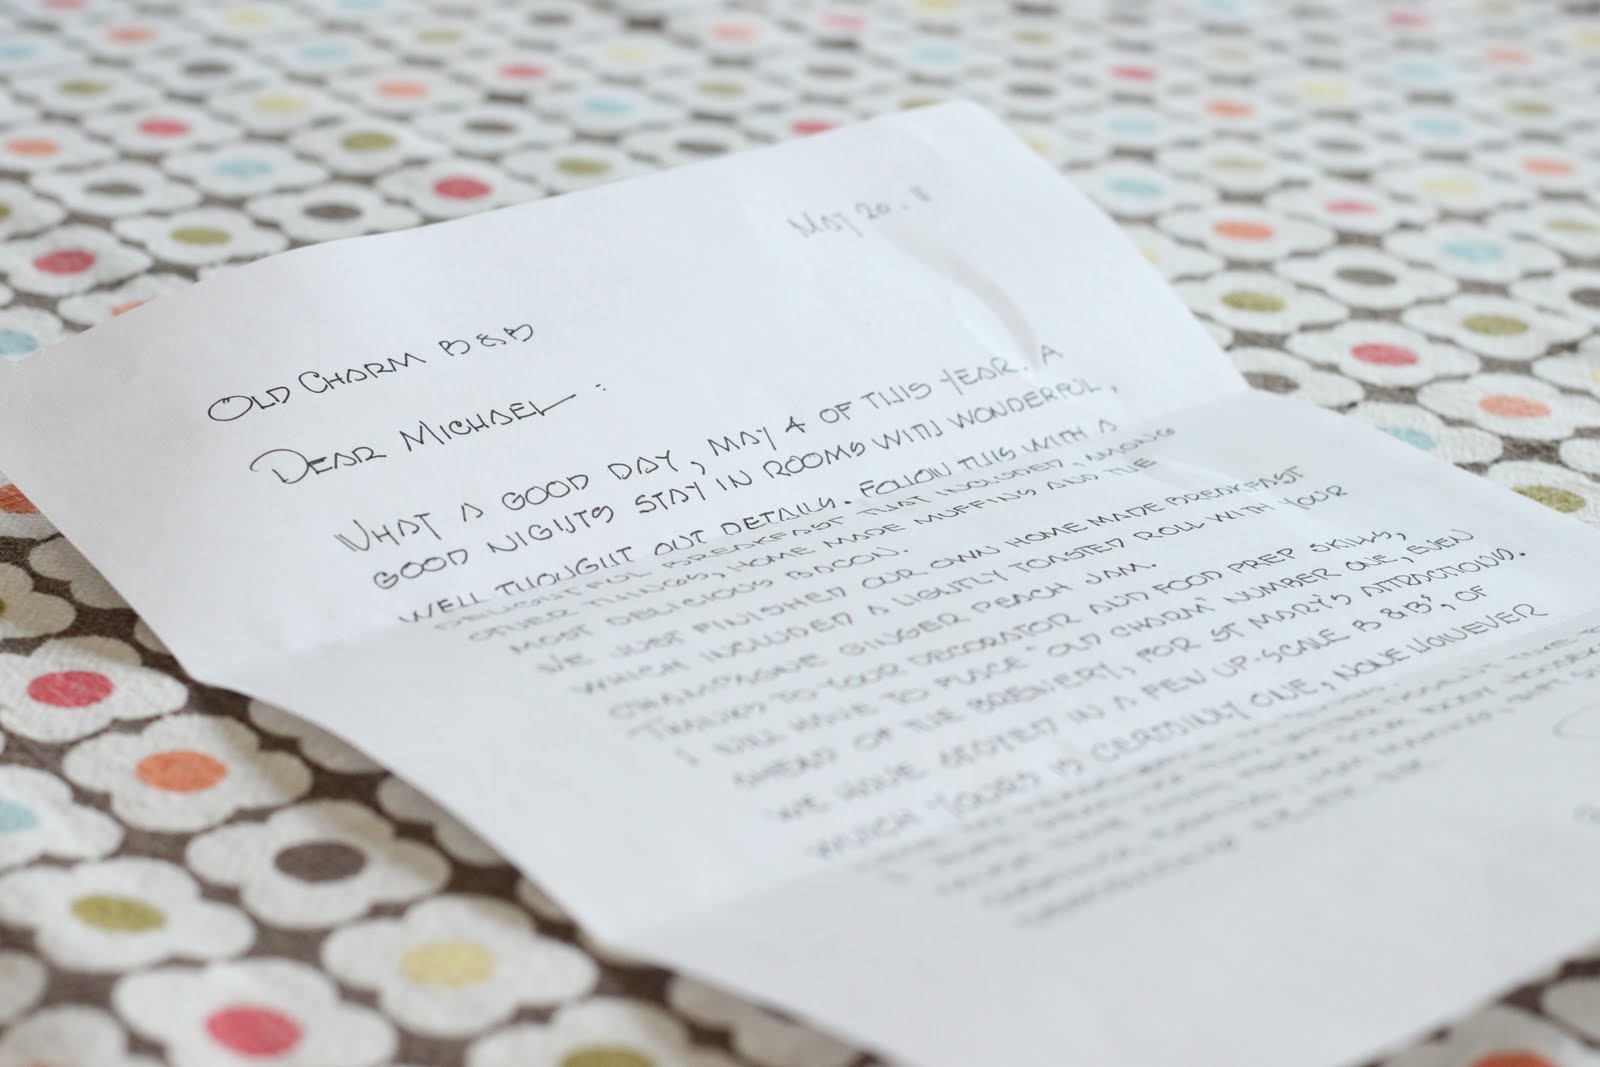 May 20.11
Old Charm B & B
Dear Michael:
What a good day, May 4 of this year. A
good nights stay in rooms with wonderful,
well thought out details. Follow this with a
delightful breakfast that included, among
other things, home made muffins and the
most delicious bacon.
We just finished our own home made breakfast
which included a lightly toasted roll with your
champagne ginger peach jam.
Thanks to your decorator and food prep skills,
I will have to place "Old Charm" number one, even
ahead of the brewery, for St Mary's attractions.
We have stayed in a few up-scale B & B's, of
which yours is certainly one, none however